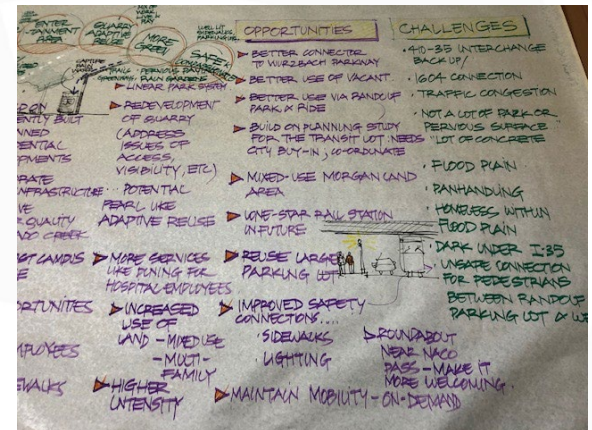 ENTER-
TAINMENT
AREA
QUARRY
ADAPTIVE
REUSE
MORE
GREEN
WELL LIT
SIDEWALKS,
PARKING, ETC.
SAFE
TRAILS
GREENWAYS
PERVIOUS PAVERS
RAIN GARDENS
LINEAR PARK SYSTEM
REDEVELOPMENT
OF QUARRY
(ADDRESS
ISSUES OF
ACCESS,
VISIBILITY, ETC)
POTENTIAL
PEARL LIKE
ADAPTIVE REUSE
MORE SERVICES
LIKE DINING FOR
HOSPITAL EMPLOYEES
INCREASED
USE OF
LAND - MIXED USE
- MULTI-
FAMILY
HIGHER
INTENSITY
ENTLY BUILT
NNED
DENTIAL
OPMENTS
RATE
NFRASTRUCTURE
VE
R QUALITY
ADO CREEK
ST CAMPUS
ORTUNITIES
MPLOYEES
EWALKS
OPPORTUNITIES
BETTER CONNECTER
TO WURZBACH PARKWAY
BETTER USE OF VACANT
BETTER USE VIA RANDOLF
PARK & RIDE
BUILD ON PLANNING STUDY
FOR THE TRANSIT LOT: NEEDS
CITY BUY-IN, CO-ORDINATE
MIXED-USE MORGAN LAND
AREA
LONE-STAR RAIL STATION
IN FUTURE
REUSE LARGE
PARKING LOT
IMPROVED SAFETY
CONNECTIONS....
· SIDEWALKS
· LIGHTING
ROUNDABOUT
NEAR NACO
PASS - MAKE IT
MORE WELCOMING.
MAINTAIN MOBILITY-ON-DEMAND
CHALLENGES
· 410-35 INTERCHANGE
BACK UP!
· 1604 CONNECTION
· TRAFFIC CONGESTION
· NOT A LOT OF PARK OR
PERVIOUS SURFACE
"LOT OF CONCRETE
· FLOOD PLAIN
· PANHANDLING
· HOMELESS WITHIN
FLOOD PLAIN
· DARK UNDER I-35
· UNSAFE CONNECTION
FOR PEDESTRIANS
BETWEEN RANDOLF
PARKING LOT &